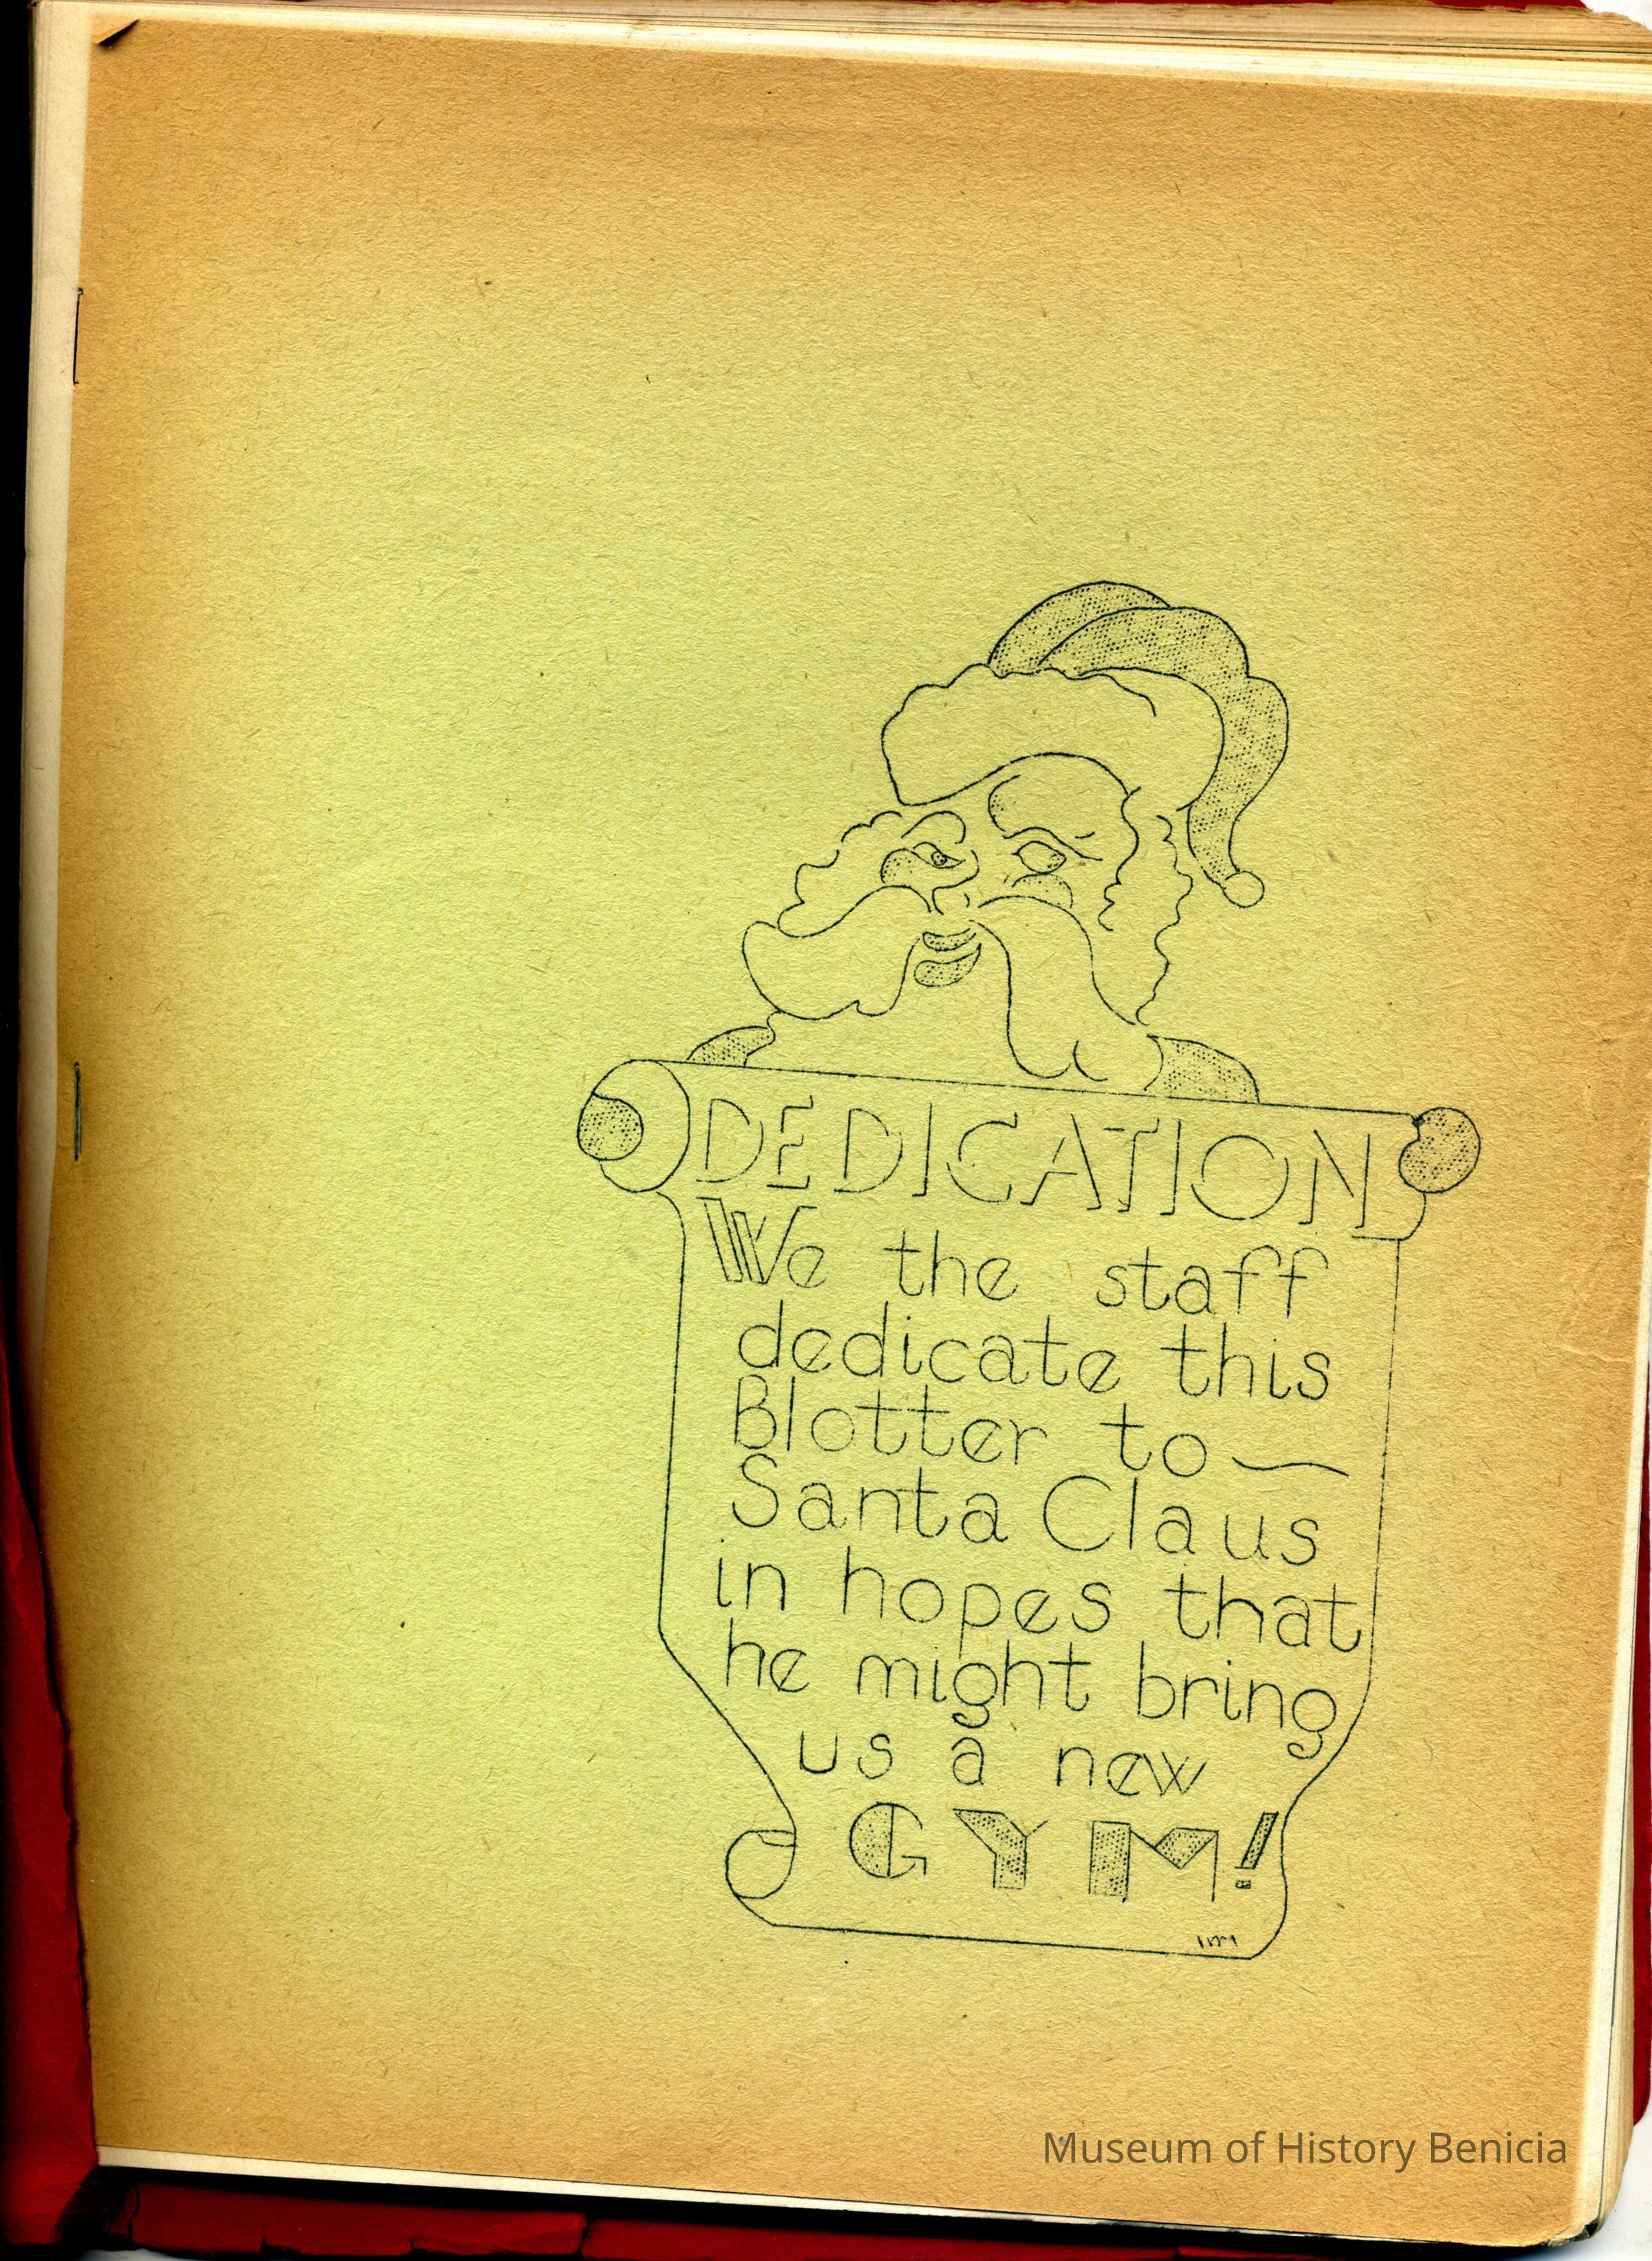 DEDICATION
We the staff
dedicate this
Blotter to —
Santa Claus
in hopes that
he might bring
us a new
GYM!
Museum of History Benicia